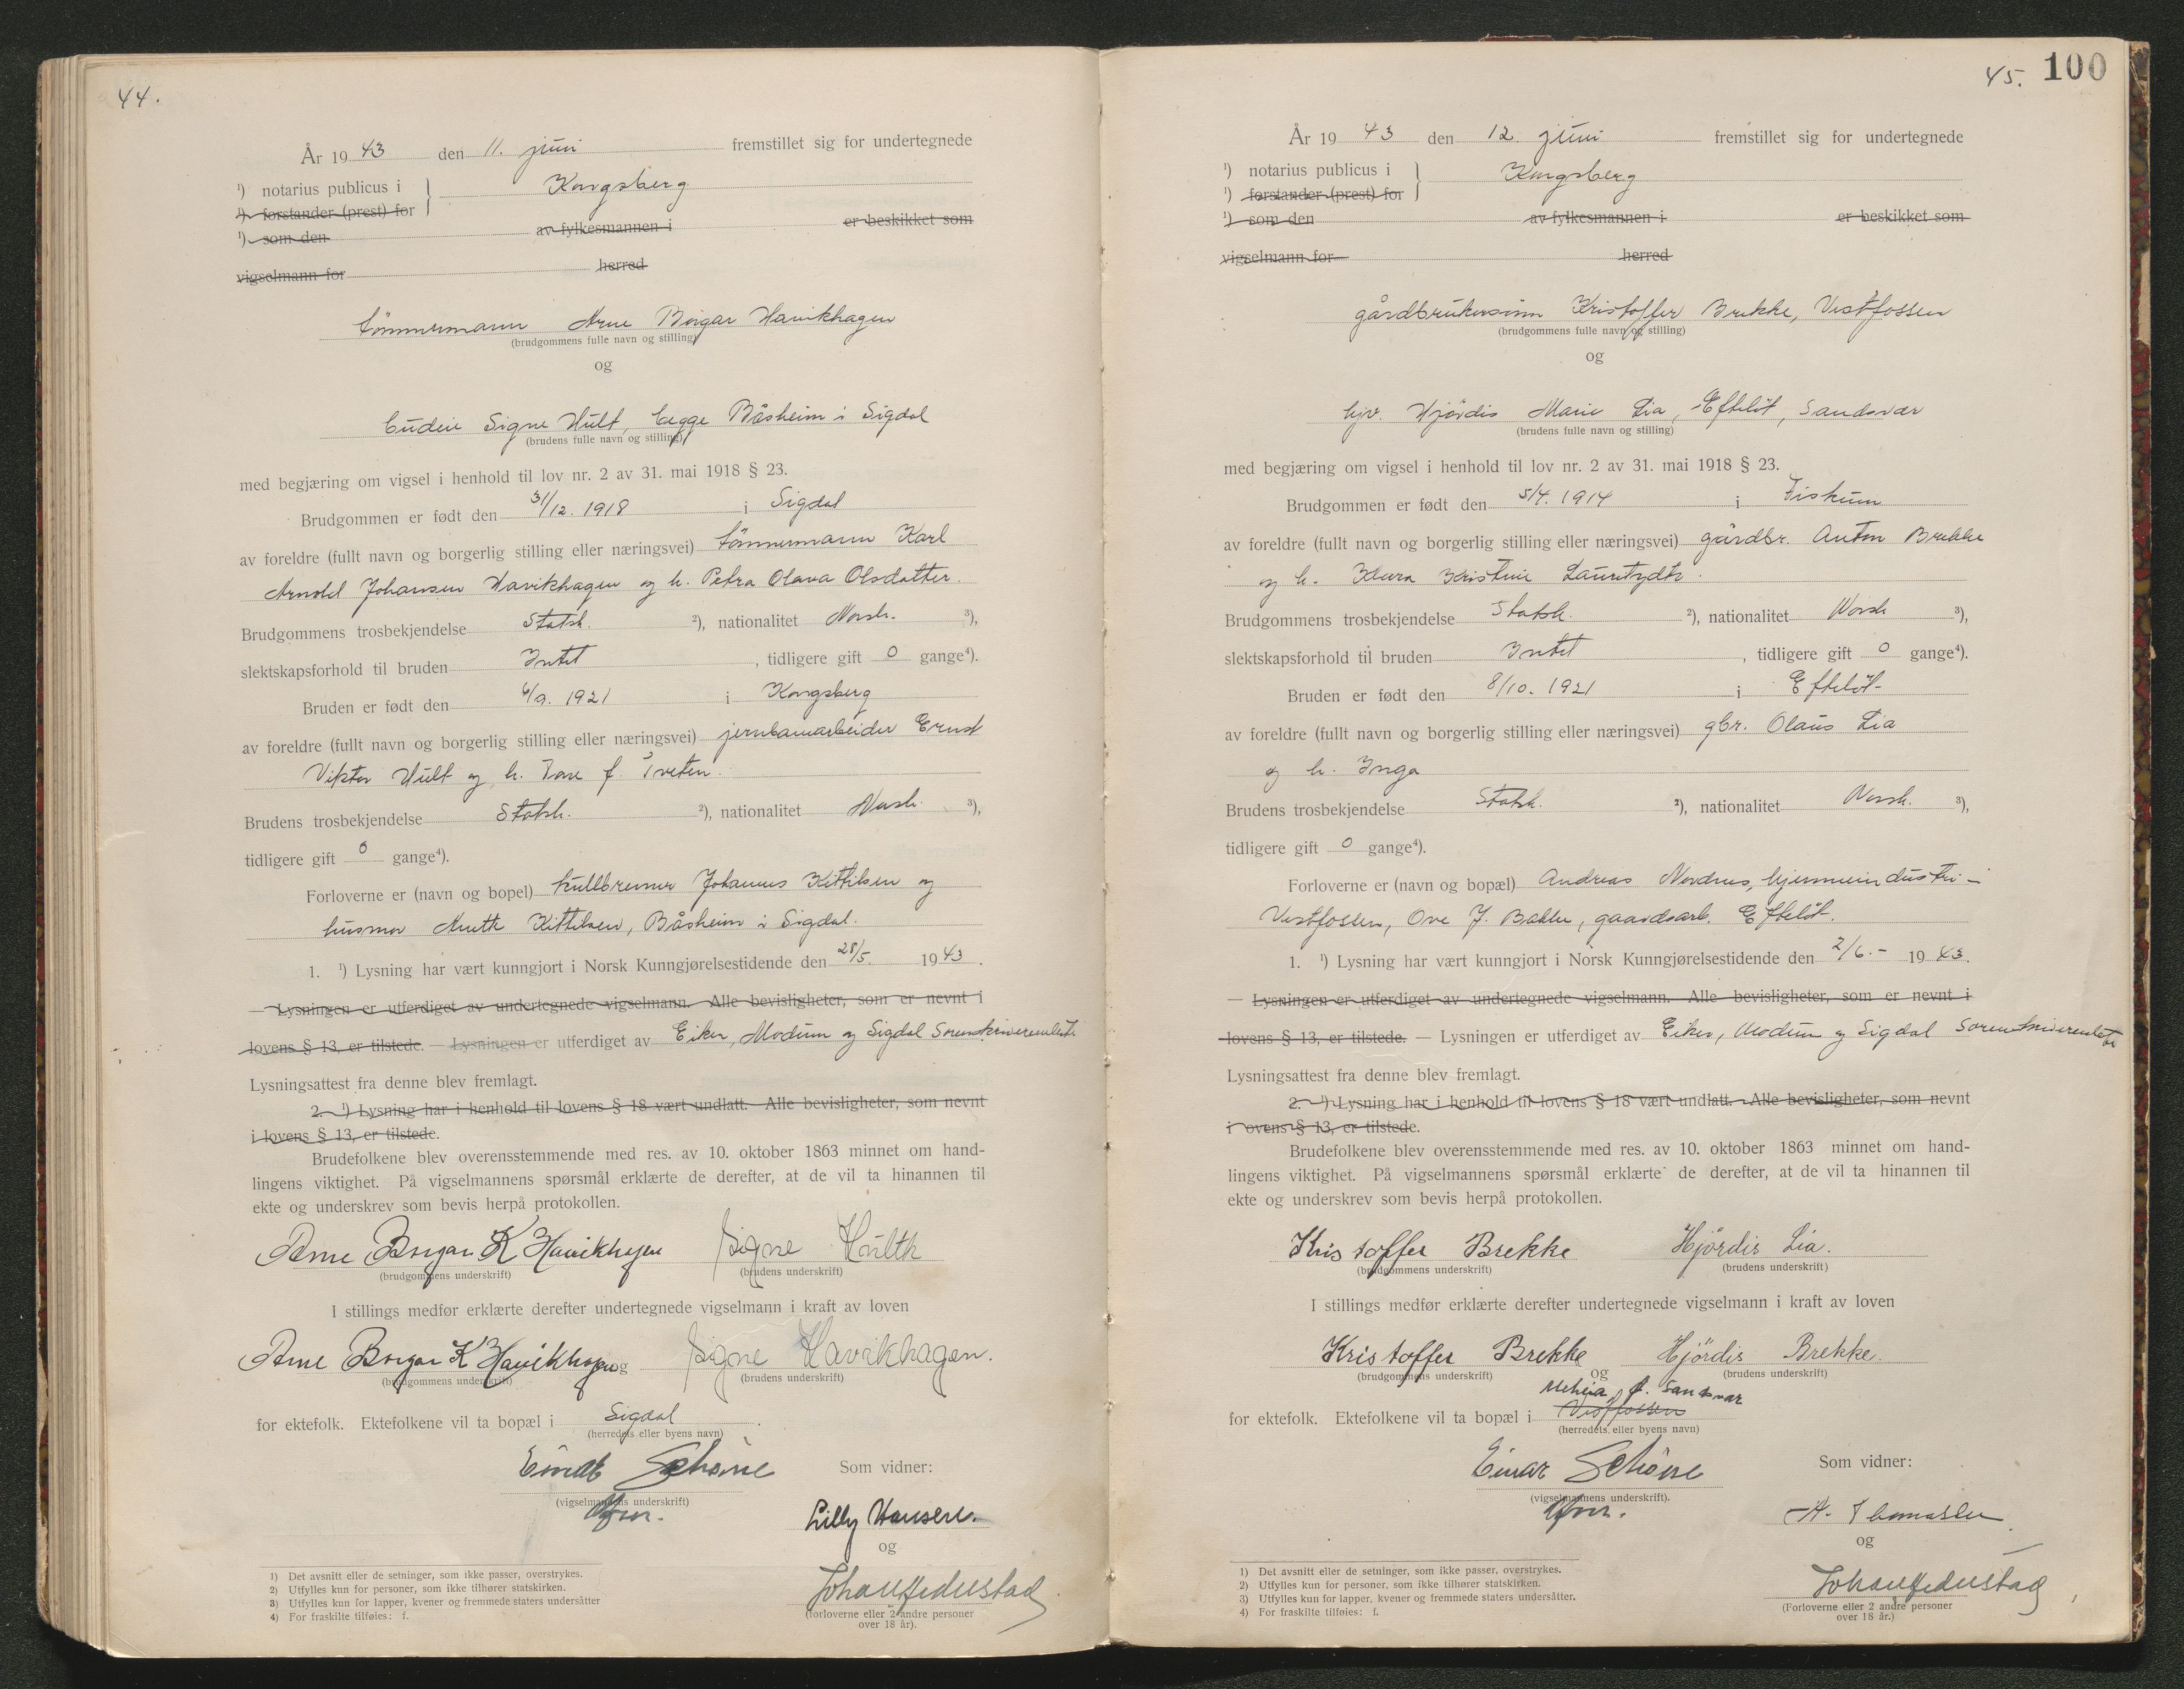 44.
År 19 43 den 11. juni fremstillet sig for undertegnede
¹) notarius publicus i Kongsberg
¹) forstander (prest) for
¹) som den av fylkesmannen i er beskikket som
vigselmann for herred
tömmermann Arne Borgar Havikhagen
(brudgommens fulle navn og stilling)
og
Signe Hult, Egge Båsheim i Sigdal
(brudens fulle navn og stilling)
med begjæring om vigsel i henhold til lov nr. 2 av 31. mai 1918 § 23.
Brudgommen er født den 31/12. 1918 i Sigdal
av foreldre (fullt navn og borgerlig stilling eller næringsvei) tömmermann Karl
Arnold Johansen Havikhagen og h. Petra Olava Olsdatter.
Brudgommens trosbekjendelse Statsk. ²), nationalitet Norsk. ³),
slektskapsforhold til bruden Intet , tidligere gift 0 gange⁴).
Bruden er født den 6/9. 1921 i Kongsberg
av foreldre (fullt navn og borgerlig stilling eller næringsvei) jernbanearbeider Ernst
Viktor Hult og h. Tone f. Tveten.
Brudens trosbekjendelse Statsk. ²), nationalitet Norsk. ³),
tidligere gift 0 gange⁴).
Forloverne er (navn og bopel) kullbrenner Johannes Kittilsen og
husmor Anette Kittilsen, Båsheim i Sigdal.
1. ¹) Lysning har vært kunngjort i Norsk Kunngjørelsestidende den 28/5. 19 43.
— Lysningen er utferdiget av undertegnede vigselmann. Alle bevisligheter, som er nevnt i
lovens § 13, er tilstede. — Lysningen er utferdiget av Eiker, Modum og Sigdal Sorenskriverembete
Lysningsattest fra denne blev fremlagt.
2. ¹) Lysning har i henhold til lovens § 18 vært undlatt. Alle bevisligheter, som nevnt
i lovens § 13, er tilstede.
Brudefolkene blev overensstemmende med res. av 10. oktober 1863 minnet om hand-
lingens viktighet. På vigselmannens spørsmål erklærte de derefter, at de vil ta hinannen til
ekte og underskrev som bevis herpå protokollen.
Arne Borgar K Havikhagen Signe Hulth
(brudgommens underskrift) (brudens underskrift)
I stillings medfør erklærte derefter undertegnede vigselmann i kraft av loven
Arne Borgar K Havikhagen og Signe Havikhagen.
(brudgommens underskrift) (brudens underskrift)
for ektefolk. Ektefolkene vil ta bopæl i Sigdal .
(herredets eller byens navn)
Einar Schöne Som vidner:
(vigselmannens underskrift)
Lilly Hansen.
og
(forloverne eller 2 andre personer
over 18 år).
1) Det avsnitt eller de setninger, som ikke passer, overstrykes.
2) Utfylles kun for personer, som ikke tilhører statskirken.
3) Utfylles kun for lapper, kvener og fremmede staters undersåtter
4) For fraskilte tilføies: f.
45. 100
År 19 43 den 12. juni fremstillet sig for undertegnede
¹) notarius publicus i Kongsberg
¹) forstander (prest) for
¹) som den av fylkesmannen i er beskikket som
vigselmann for herred
gårdbrukersönn Kristoffer Brekke, Vestfossen
(brudgommens fulle navn og stilling)
og
hjv. Hjördis Marie Lia, Efteløt, Sandsvær
(brudens fulle navn og stilling)
med begjæring om vigsel i henhold til lov nr. 2 av 31. mai 1918 § 23.
Brudgommen er født den 5/4. 1914 i Fiskum
av foreldre (fullt navn og borgerlig stilling eller næringsvei) gårdbr. Anton Brekke
og h. Klara Kristine Lauritzdtr.
Brudgommens trosbekjendelse Statsk. ²), nationalitet Norsk ³),
slektskapsforhold til bruden Intet , tidligere gift 0 gange⁴).
Bruden er født den 8/10. 1921 i Efteløt
av foreldre (fullt navn og borgerlig stilling eller næringsvei) gbr. Olaus Lia
og h. Inga
Brudens trosbekjendelse Statsk. ²), nationalitet Norsk. ³),
tidligere gift 0 gange⁴).
Forloverne er (navn og bopæl) Andreas Nordnes, hjemmeindustri-
Vestfossen, Ove J. Bakke, gaardsarb. Efteløt.
1. ¹) Lysning har vært kunngjort i Norsk Kunngjørelsestidende den 2/6.- 19 43.
— Lysningen er utferdiget av undertegnede vigselmann. Alle bevisligheter, som er nevnt i
lovens § 13, er tilstede. — Lysningen er utferdiget av Eiker, Modum og Sigdal Sorenskriverembete
Lysningsattest fra denne blev fremlagt.
2. ¹) Lysning har i henhold til lovens § 18 vært undlatt. Alle bevisligheter, som nevnt
i ovens § 13, er tilstede.
Brudefolkene blev overensstemmende med res. av 10. oktober 1863 minnet om hand-
lingens viktighet. På vigselmannens spørsmål erklærte de derefter, at de vil ta hinannen til
ekte og underskrev som bevis herpå protokollen.
Kristoffer Brekke Hjördis Lia.
(brudgommens underskrift) (brudens underskrift)
I stillings medfør erklærte derefter undertegnede vigselmann i kraft av loven
Kristoffer Brekke og Hjördis Brekke.
(brudgommens underskrift) (brudens underskrift)
Meheia p. Sandsvær
for ektefolk. Ektefolkene vil ta bopæl i Vestfossen
(herredets eller byens navn)
Einar Schöne Som vidner:
(vigselmannens underskrift).
A. Thomassen
og
(Forloverne eller 2 andre personer
over 18 år.)
1) Det avsnitt eller de setninger, som ikke passer, overstrykes.
2) Utfylles kun for personer, som ikke tilhører statskirken.
3) Utfylles kun for lapper, kvener og fremmede staters undersåtter.
4) For fraskilte tilføies: f.